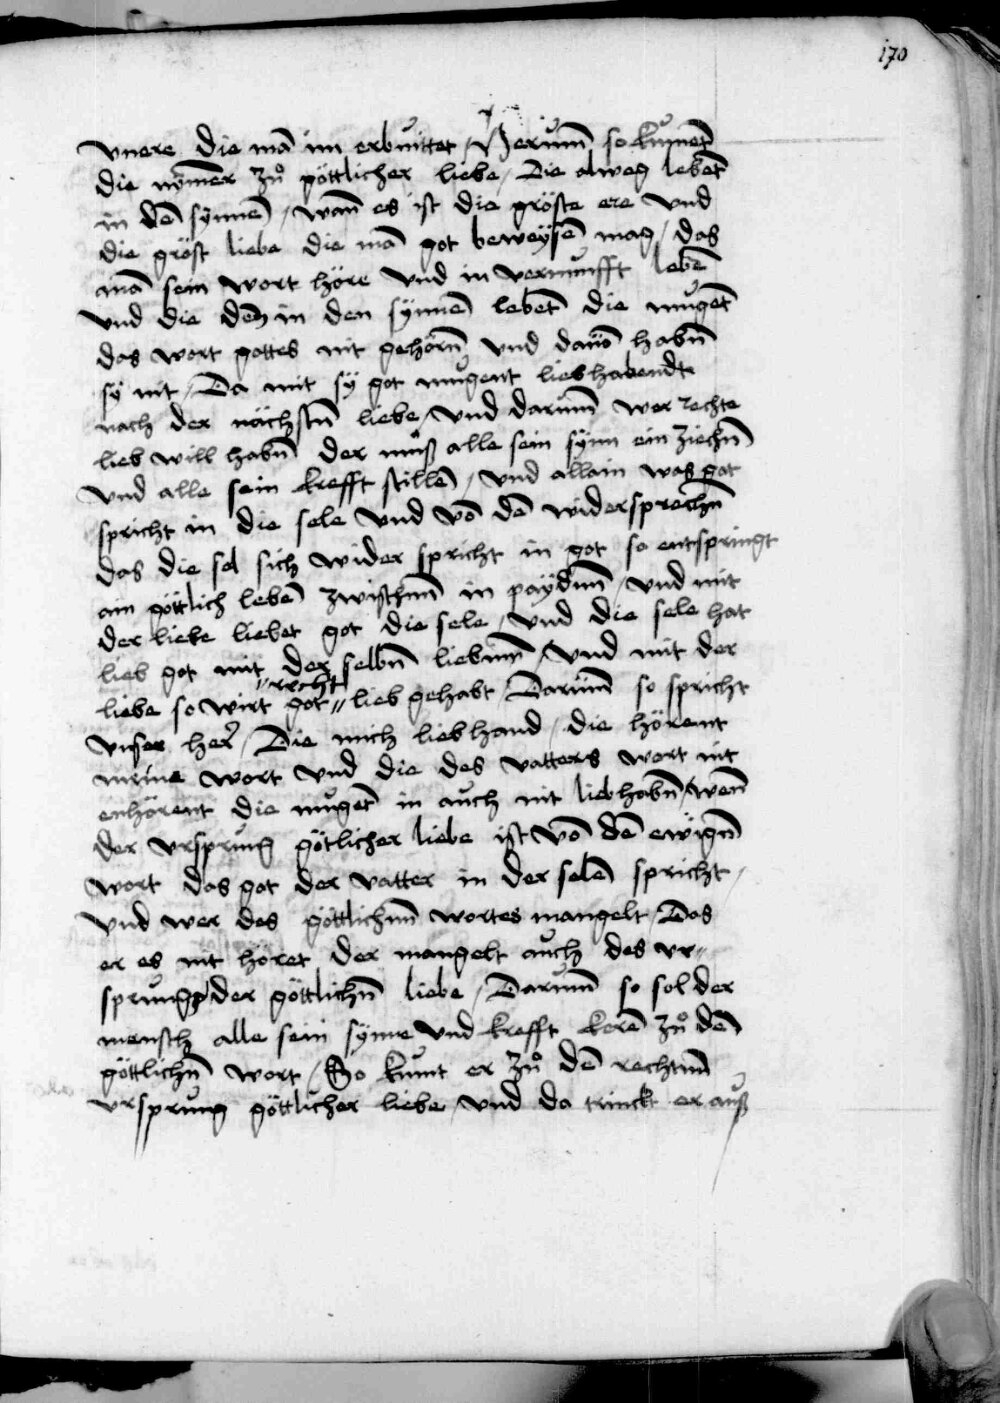 170
vnere die mā im erbuittet / Herumb so kumet
die nymer zuͦ göttlicher liebe / Die alweg lebēt
in dē synnē / wan̄ es ist die gröste ere vnd
die gröst liebe die mā got beweysē mag / das
mā sein wort höre vnd in vernunfft lebē
vnd die deñ in den synnē lebēt die mugēt
das wort gottes nit gehörn̄ vnd dauō habn̄
sy nit / Da mit sy got mugent liebhabendt
nach der nächstn̄ liebe / vnd darumb wer rechte
lieb will habn̄ der muß alle sein synn ein ziechn̄
vnd alle sein krefft stillē / vnd allain was got
spricht in die sele vnd vō dē widersprechn̄
das die sel sich wider spricht in got so entspringt
ain göttlich lebē zwischnn̄ in paydnn̄ / vnd mit
der liebe liebet got die sele / vnd die sele hat
lieb got mit der selbn̄ liebinn̄ / vnd mit der
liebe so wirt got " recht " lieb gehabt / Darumb so spricht
vnser her̄ / Die mich liebhand / die hörent
meine wort vnd die des vatters wort nit
enhörent die mugēt in auch nit liebhabn̄ / wen̄
der vrsprung götlicher liebe ist vō dē ewign̄
wort das got der vatter in der selē spricht /
vnd wer des göttlichnn̄ wortes mangelt / Das
er es nit höret der mangelt auch des vr"
sprungs der göttlichn̄ liebe / Darumb so sol der
mensch alle sein synne vnd krefft kerē zuͦ dē
göttlichn̄ wort / So kumt er zuͦ dē rechtnn̄
vrsprung göttlicher liebe / vnd da trinckt er auß